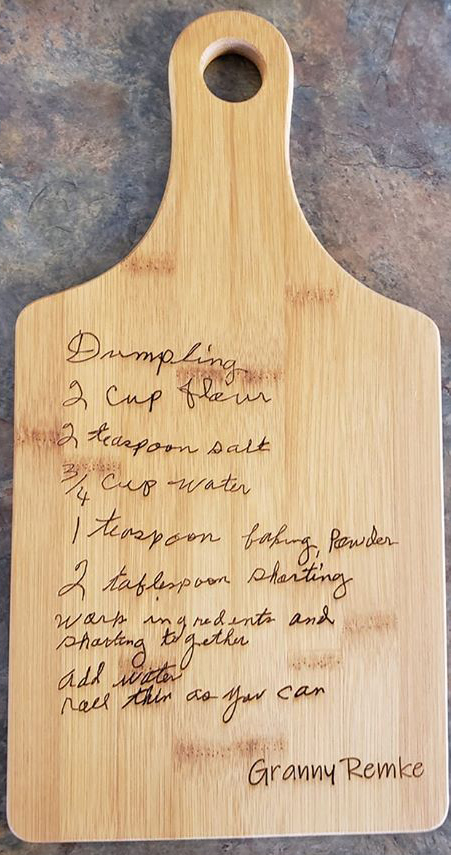 Dumpling
2 cup flour
2 teaspoon salt
3/4 cup water
1 teaspoon baking Powder
2 tablespoon shorting
work ingredents and
shorting together
add water
roll thin as you can
Granny Remke